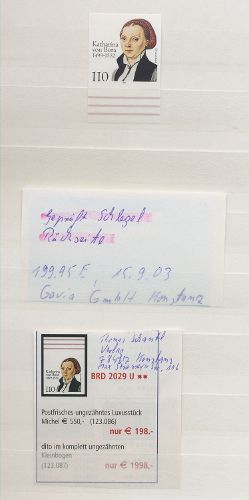 Katharina
von Bora
1499-1552
110
geprüft Schlegel
Rückseite
199,95 E, 15.9.03
Gavia GmbH Konstanz
Katharina
von Bora
1499-1552
110
BRD 2029 U **
Verlag
Postfrisches ungezähntes Luxusstück
Michel € 550,- (123.086)
nur € 198,-
dito im komplett ungezähnten
Kleinbogen
(123.087) nur € 1998,-